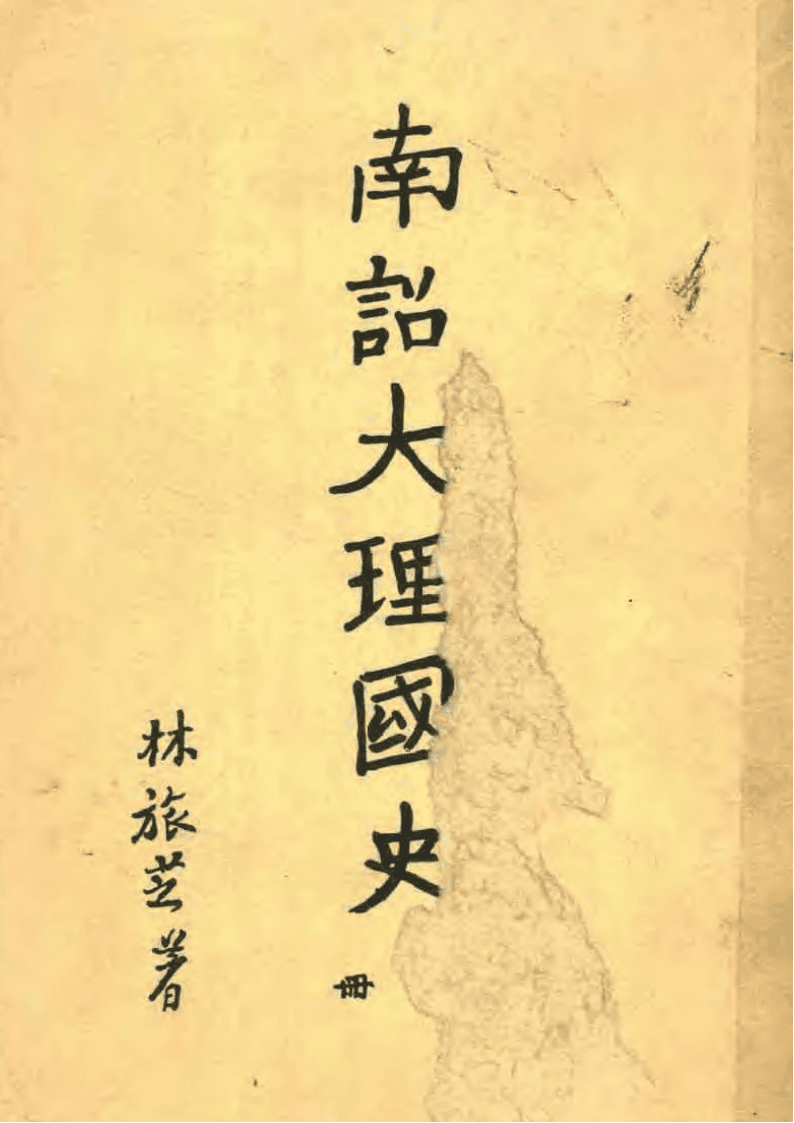 南詔大理國史
冊
林旅芝著